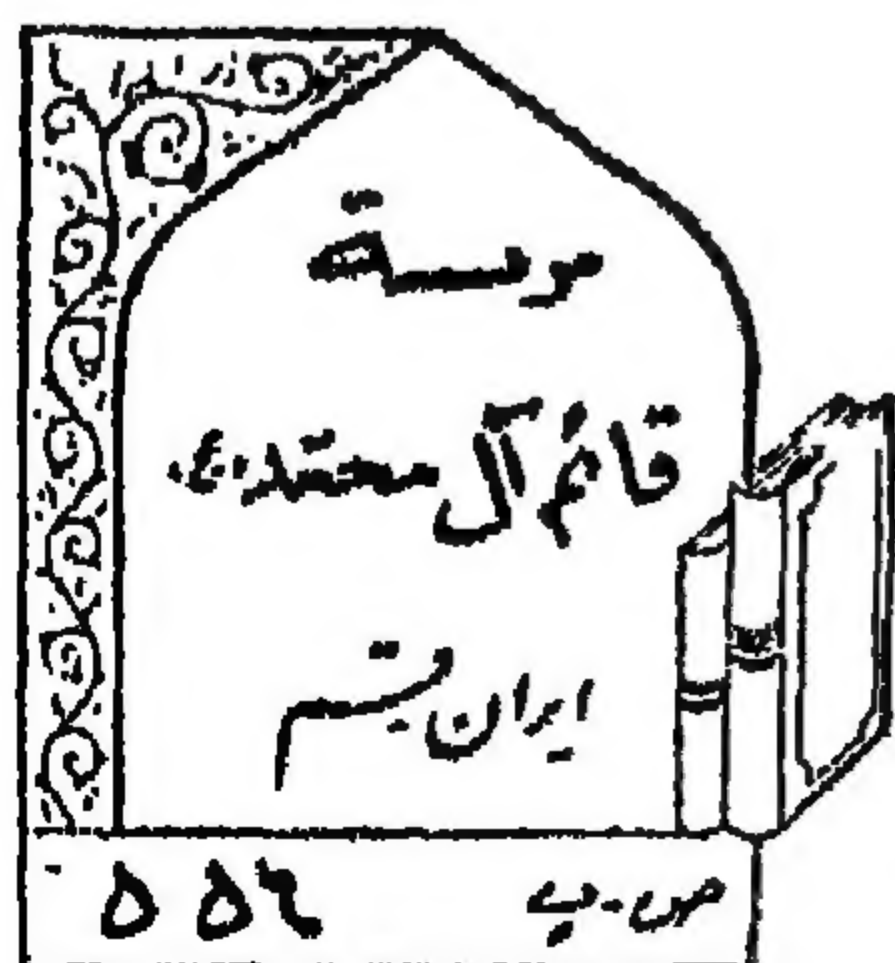 موسسة
قائم آل محمّد «ع»
ایران قم
ص-پ ٥٥٤